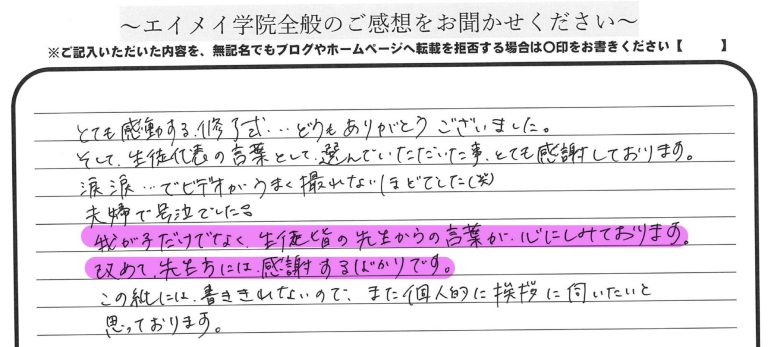 ～エイメイ学院全般のご感想をお聞かせください～
※ご記入いただいた内容を、無記名でもブログやホームページへ転載を拒否する場合は〇印をお書きください【　　】
とても感動する、修了式…どうもありがとうございました。
そして、生徒代表の言葉として、選んでいただいた事、とても感謝しております。
涙涙…でビデオがうまく撮れないほどでした(笑)
夫婦で号泣でした。
我が子だけでなく、生徒皆の先生からの言葉が、心にしみております。
改めて、先生方には、感謝するばかりです。
この紙には、書ききれないので、また個人的に挨拶に伺いたいと
思っております。